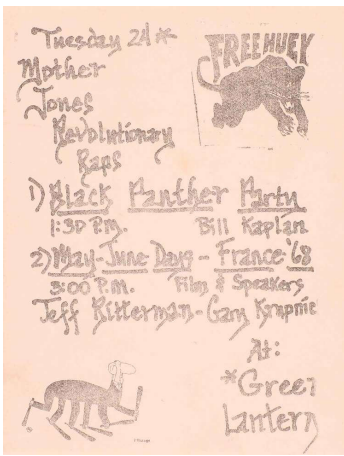 Tuesday 24*
FREE HUEY
Mother
Jones
Revolutionary
Raps
1) Black Panther Party
1:30 P.m. Bill Kaplan
2) May-June Days - France '68
3:00 P.m. Film & Speakers
Jeff Ritterman - Gary
At:
*Green
Lantern